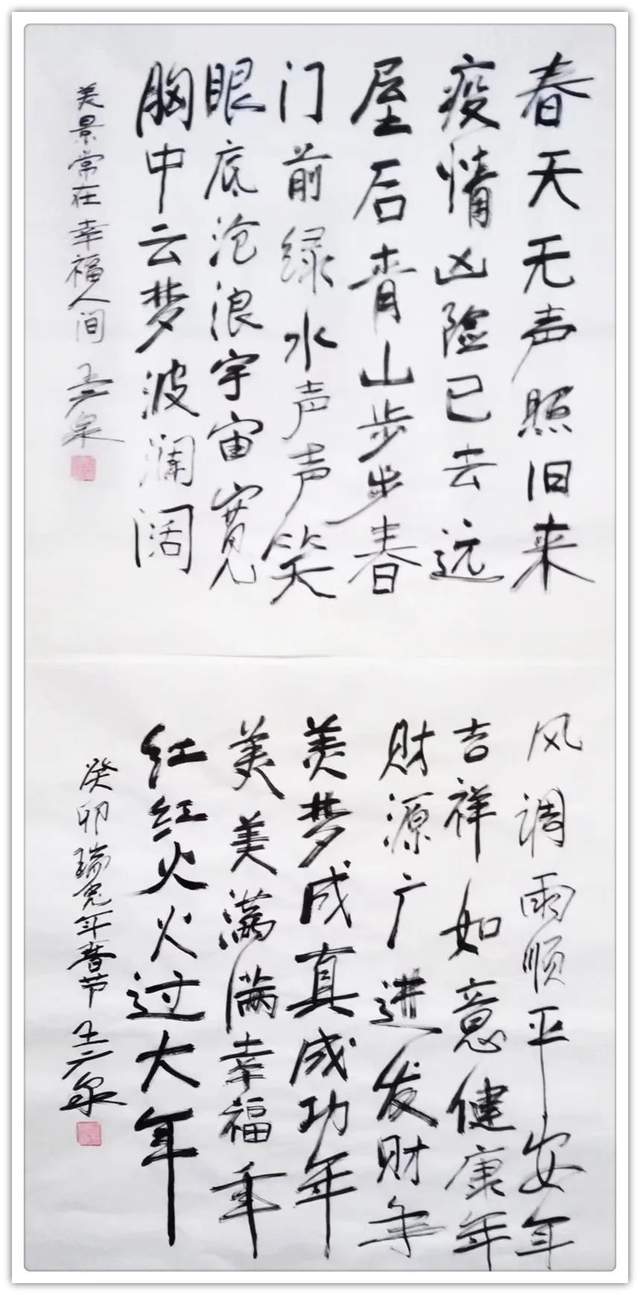 春天无声照旧来
疫情凶险已去远
屋后青山步步春
门前绿水声声笑
眼底沧浪宇宙宽
胸中云梦波澜阔
美景常在幸福人间 王二泉
风调雨顺平安年
吉祥如意健康年
财源广进发财年
美梦成真成功年
美美满满幸福年
红红火火过大年
癸卯瑞兔年春节 王二泉